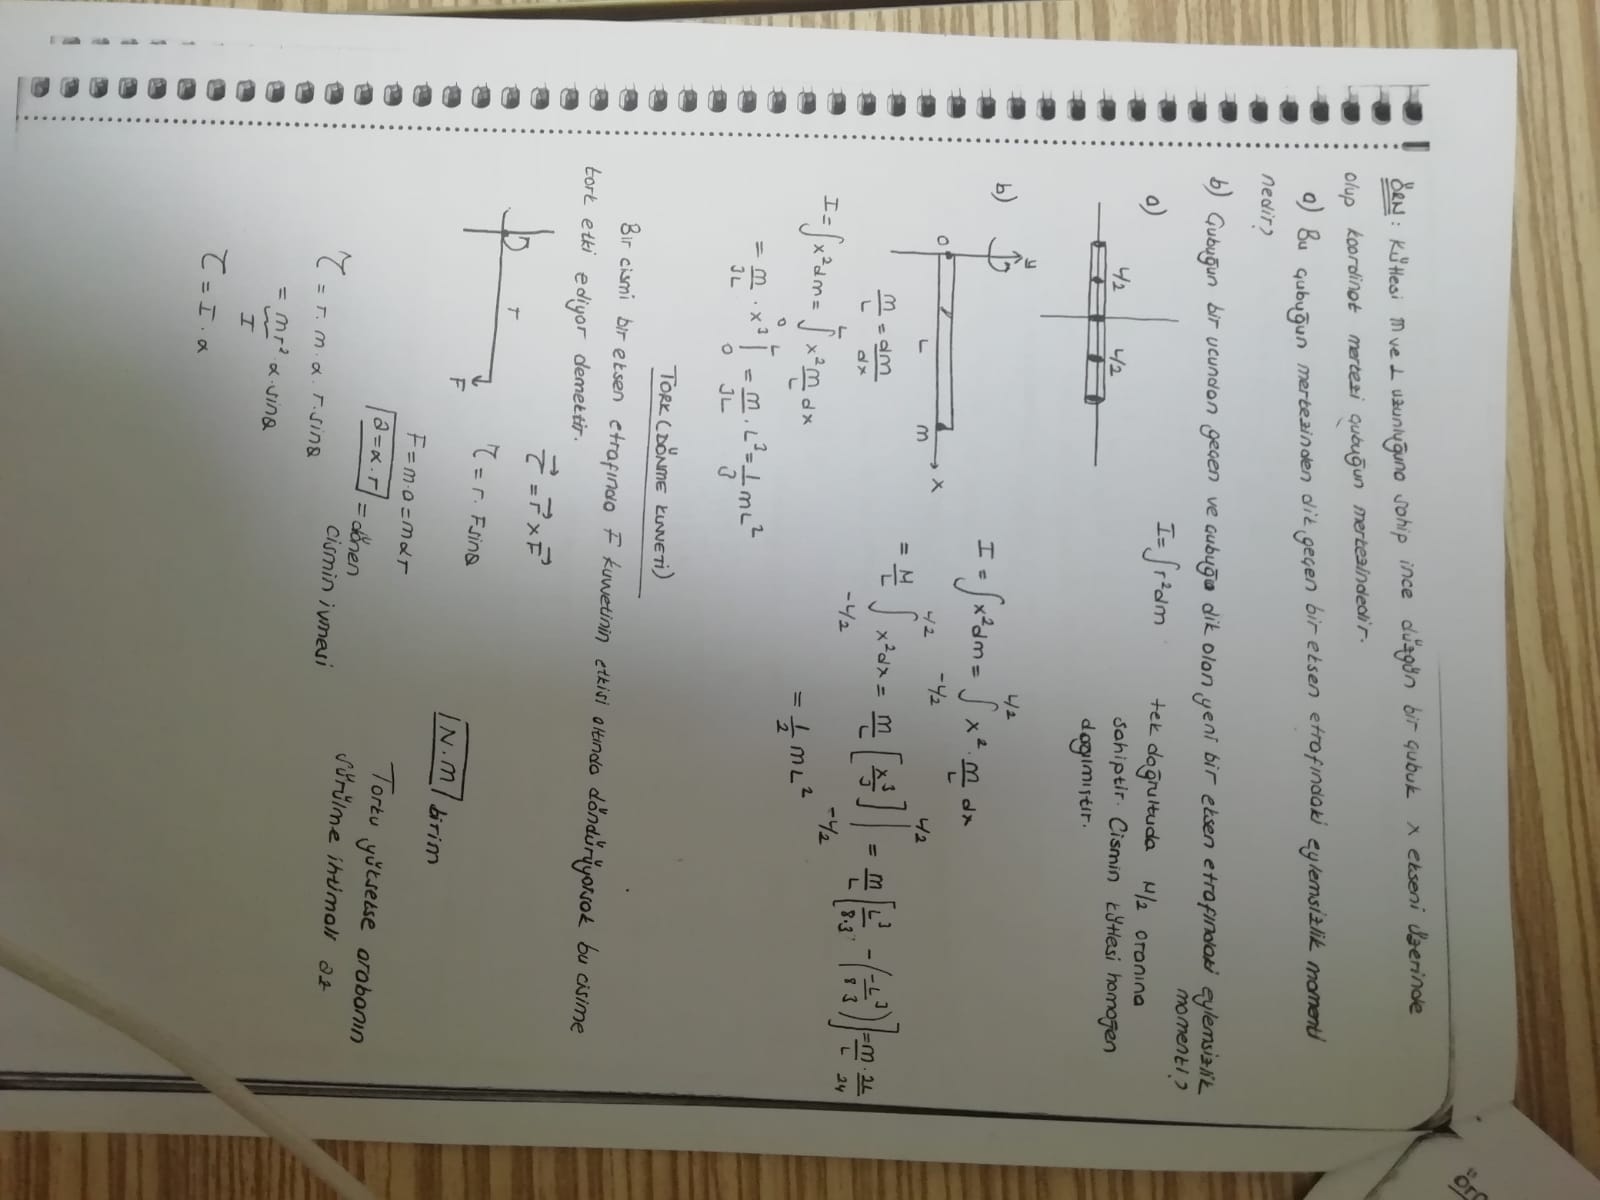 ÖRN: Kütlesi m ve L uzunluğuna sahip ince düzgün bir çubuk x ekseni üzerinde
olup koordinat merkezi çubuğun merkezindedir.
a) Bu çubuğun merkezinden dik geçen bir eksen etrafındaki eylemsizlik momenti
nedir?
b) Çubuğun bir ucundan geçen ve çubuğa dik olan yeni bir eksen etrafındaki eylemsizlik
momenti?
a)
L/2 L/2
I = ∫r²dm
tek doğrultuda M/2 oranına
sahiptir. Cismin kütlesi homojen
dağılmıştır.
I = ∫x²dm = ∫_{-L/2}^{L/2} x² · m/L dx
= M/L ∫_{-L/2}^{L/2} x²dx = m/L [x³/3] |_{-L/2}^{L/2} = m/L [L³/8·3 - (-L³/8 3)] = m/L · 2L/24
= 1/2 mL²
b)
y
0 L m x
m/L = dm/dx
I = ∫x²dm = ∫_0^L x² m/L dx
= m/3L · x³ |_0^L = m/3L · L³ = 1/3 mL²
TORK (DÖNME KUVVETİ)
Bir cismi bir eksen etrafında F kuvvetinin etkisi altında döndürüyorsak bu cisime
tork etki ediyor demektir.
r
F
τ⃗ = r⃗ x F⃗
τ = r. Fsinθ
N.m birim
F = m.a = mαr
a = α.r = dönen
cismin ivmesi
Torku yüksekse arabanın
sürülme ihtimali az
τ = r. m. α. r. sinθ
= mr² . α . sinθ
I
τ = I . α
örn